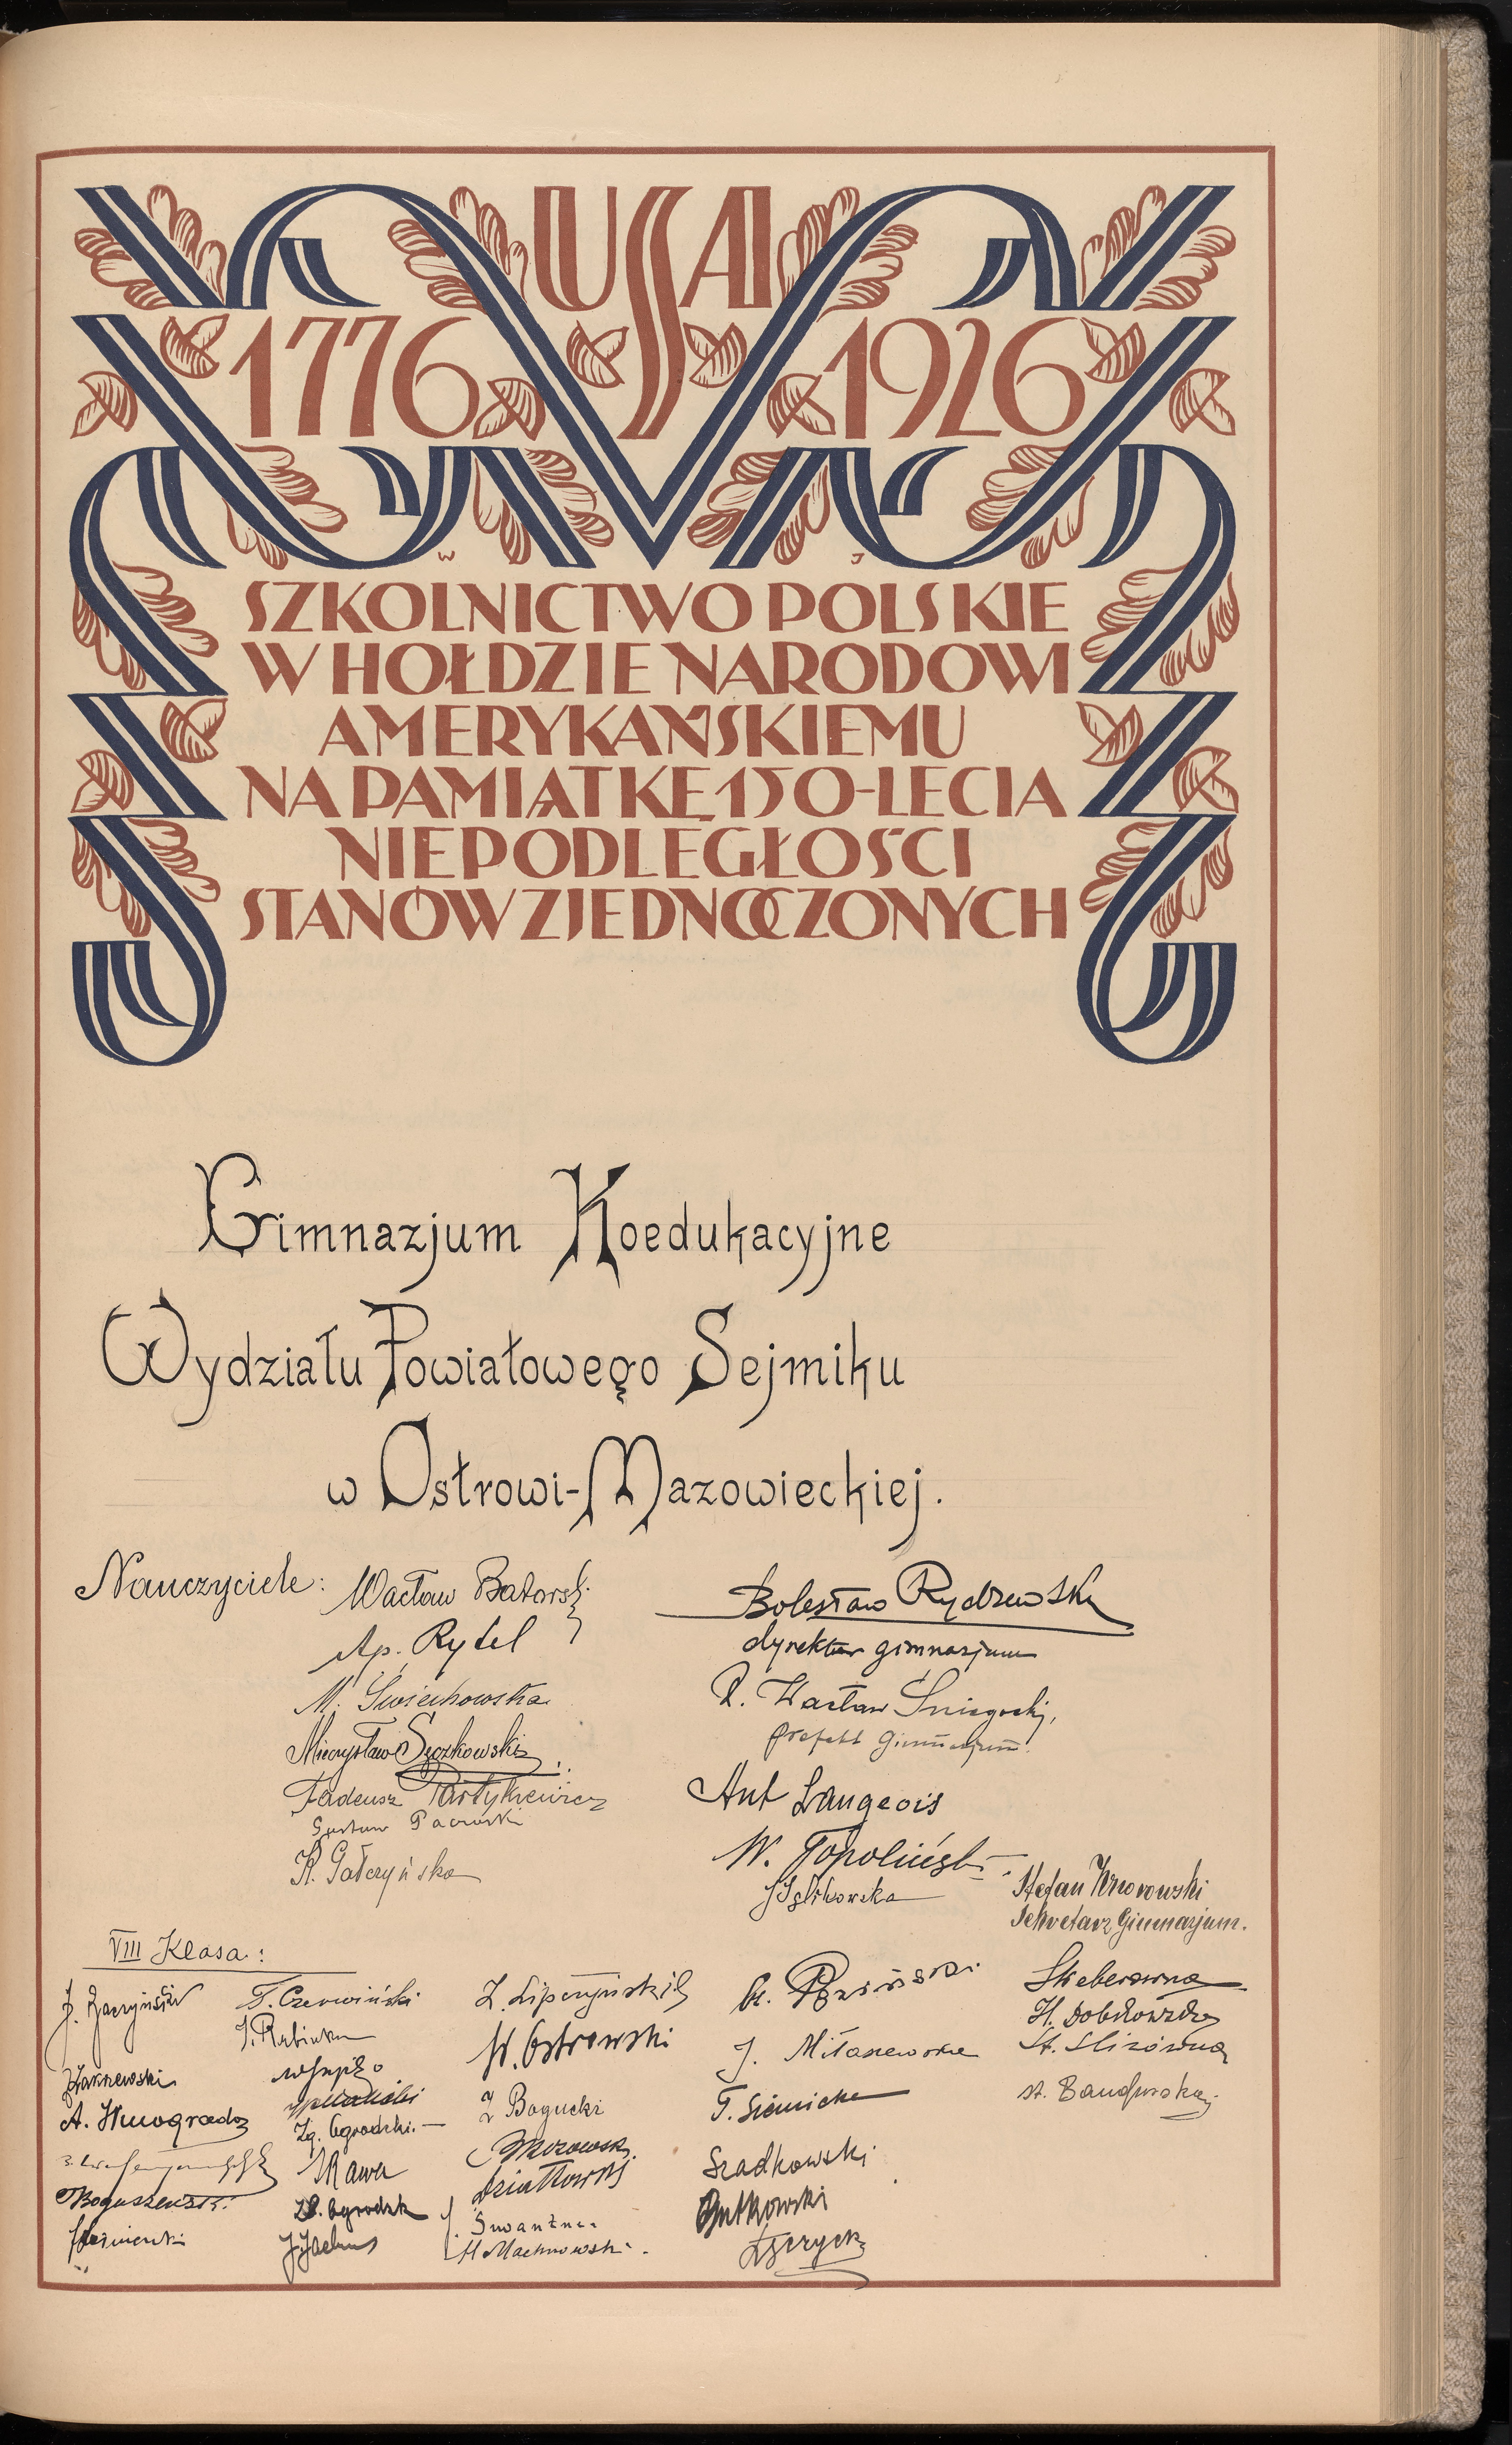 USA
1776 1926
W J
SZKOLNICTWO POLSKIE
W HOŁDZIE NARODOWI
AMERYKAŃSKIEMU
NA PAMIĄTKĘ 150-LECIA
NIEPODLEGŁOŚCI
STANÓW ZJEDNOCZONYCH
Gimnazjum Koedukacyjne
Wydziału Powiatowego Sejmiku
w Ostrowi-Mazowieckiej.
Nauczyciele:
Wacław Batorski
Ap. Rytel
M. Świechowska
Mieczysław Sęczkowski
Tadeusz
K. Gałczyńska
Bolesław Rydzewski
dyrektor gimnazjum
X. Wacław Śniegocki,
prefekt Gimnazjum.
Ant Langeois
W. Topoliński
Stefan
Sekretarz Gimnazjum.
VIII Klasa:
J. Zaczyński
Zakrzewski
A. Winogradoz
Boguszewski
T. Czerwiński
Zg. Ogrodzki.
Kawa
Z. Lipczyński
W. Ostrowski
Z Bogucki
Mrozowski
Dziatłowski
H Machnowski.
J. Miłaszewska
T. Sienicka
Szadkowski
Rutkowski
Skeberówna
H. Dobkowska
St. Slizówna
St. Bandurska